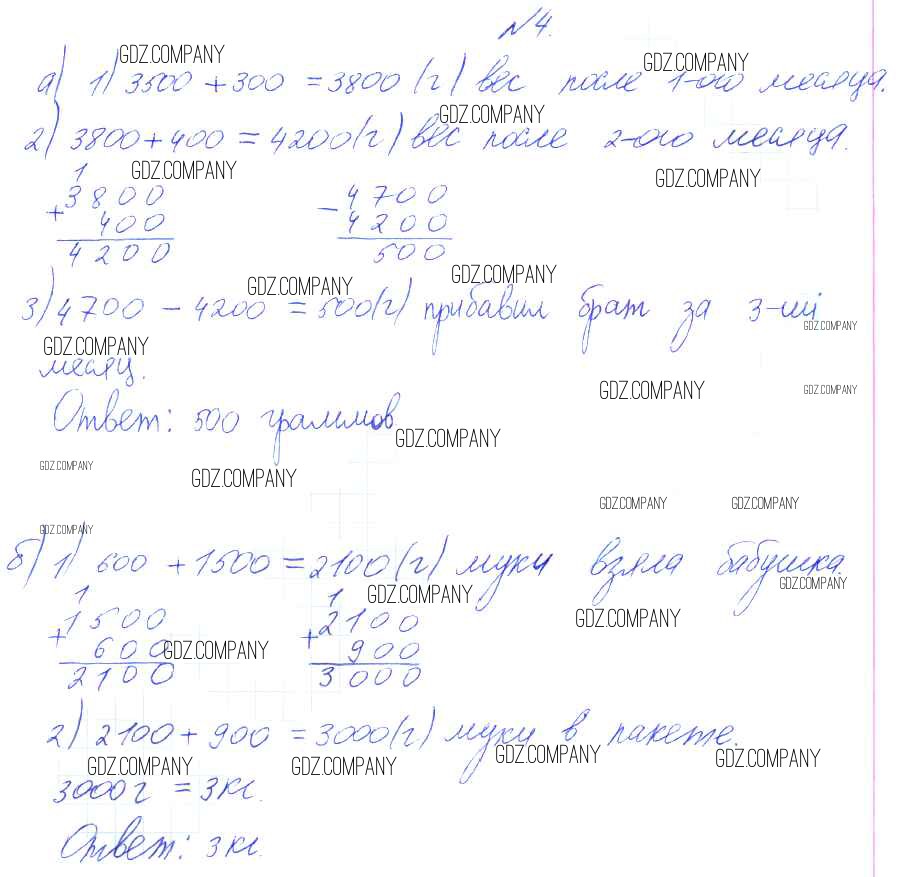 №4.
GDZ.COMPANY
GDZ.COMPANY
а) 1) 3500 + 300 = 3800 (г) вес после 1-ого месяца.
GDZ.COMPANY
2) 3800 + 400 = 4200 (г) вес после 2-ого месяца.
GDZ.COMPANY
GDZ.COMPANY
1
+ 3800 - 4700
400 4200
4200 500
GDZ.COMPANY
GDZ.COMPANY
3) 4700 - 4200 = 500 (г) прибавил брат за 3-ий
GDZ.COMPANY
GDZ.COMPANY
месяц.
GDZ.COMPANY
GDZ.COMPANY
Ответ: 500 граммов
GDZ.COMPANY
GDZ.COMPANY
GDZ.COMPANY
GDZ.COMPANY
GDZ.COMPANY
GDZ.COMPANY
б) 1) 600 + 1500 = 2100 (г) муки взяла бабушка.
GDZ.COMPANY
GDZ.COMPANY
1 1
+ 1500 + 2100
GDZ.COMPANY
600 900
GDZ.COMPANY
2100 3000
2) 2100 + 900 = 3000 (г) муки в пакете.
GDZ.COMPANY
GDZ.COMPANY
GDZ.COMPANY
GDZ.COMPANY
3000 г = 3 кг.
Ответ: 3 кг.